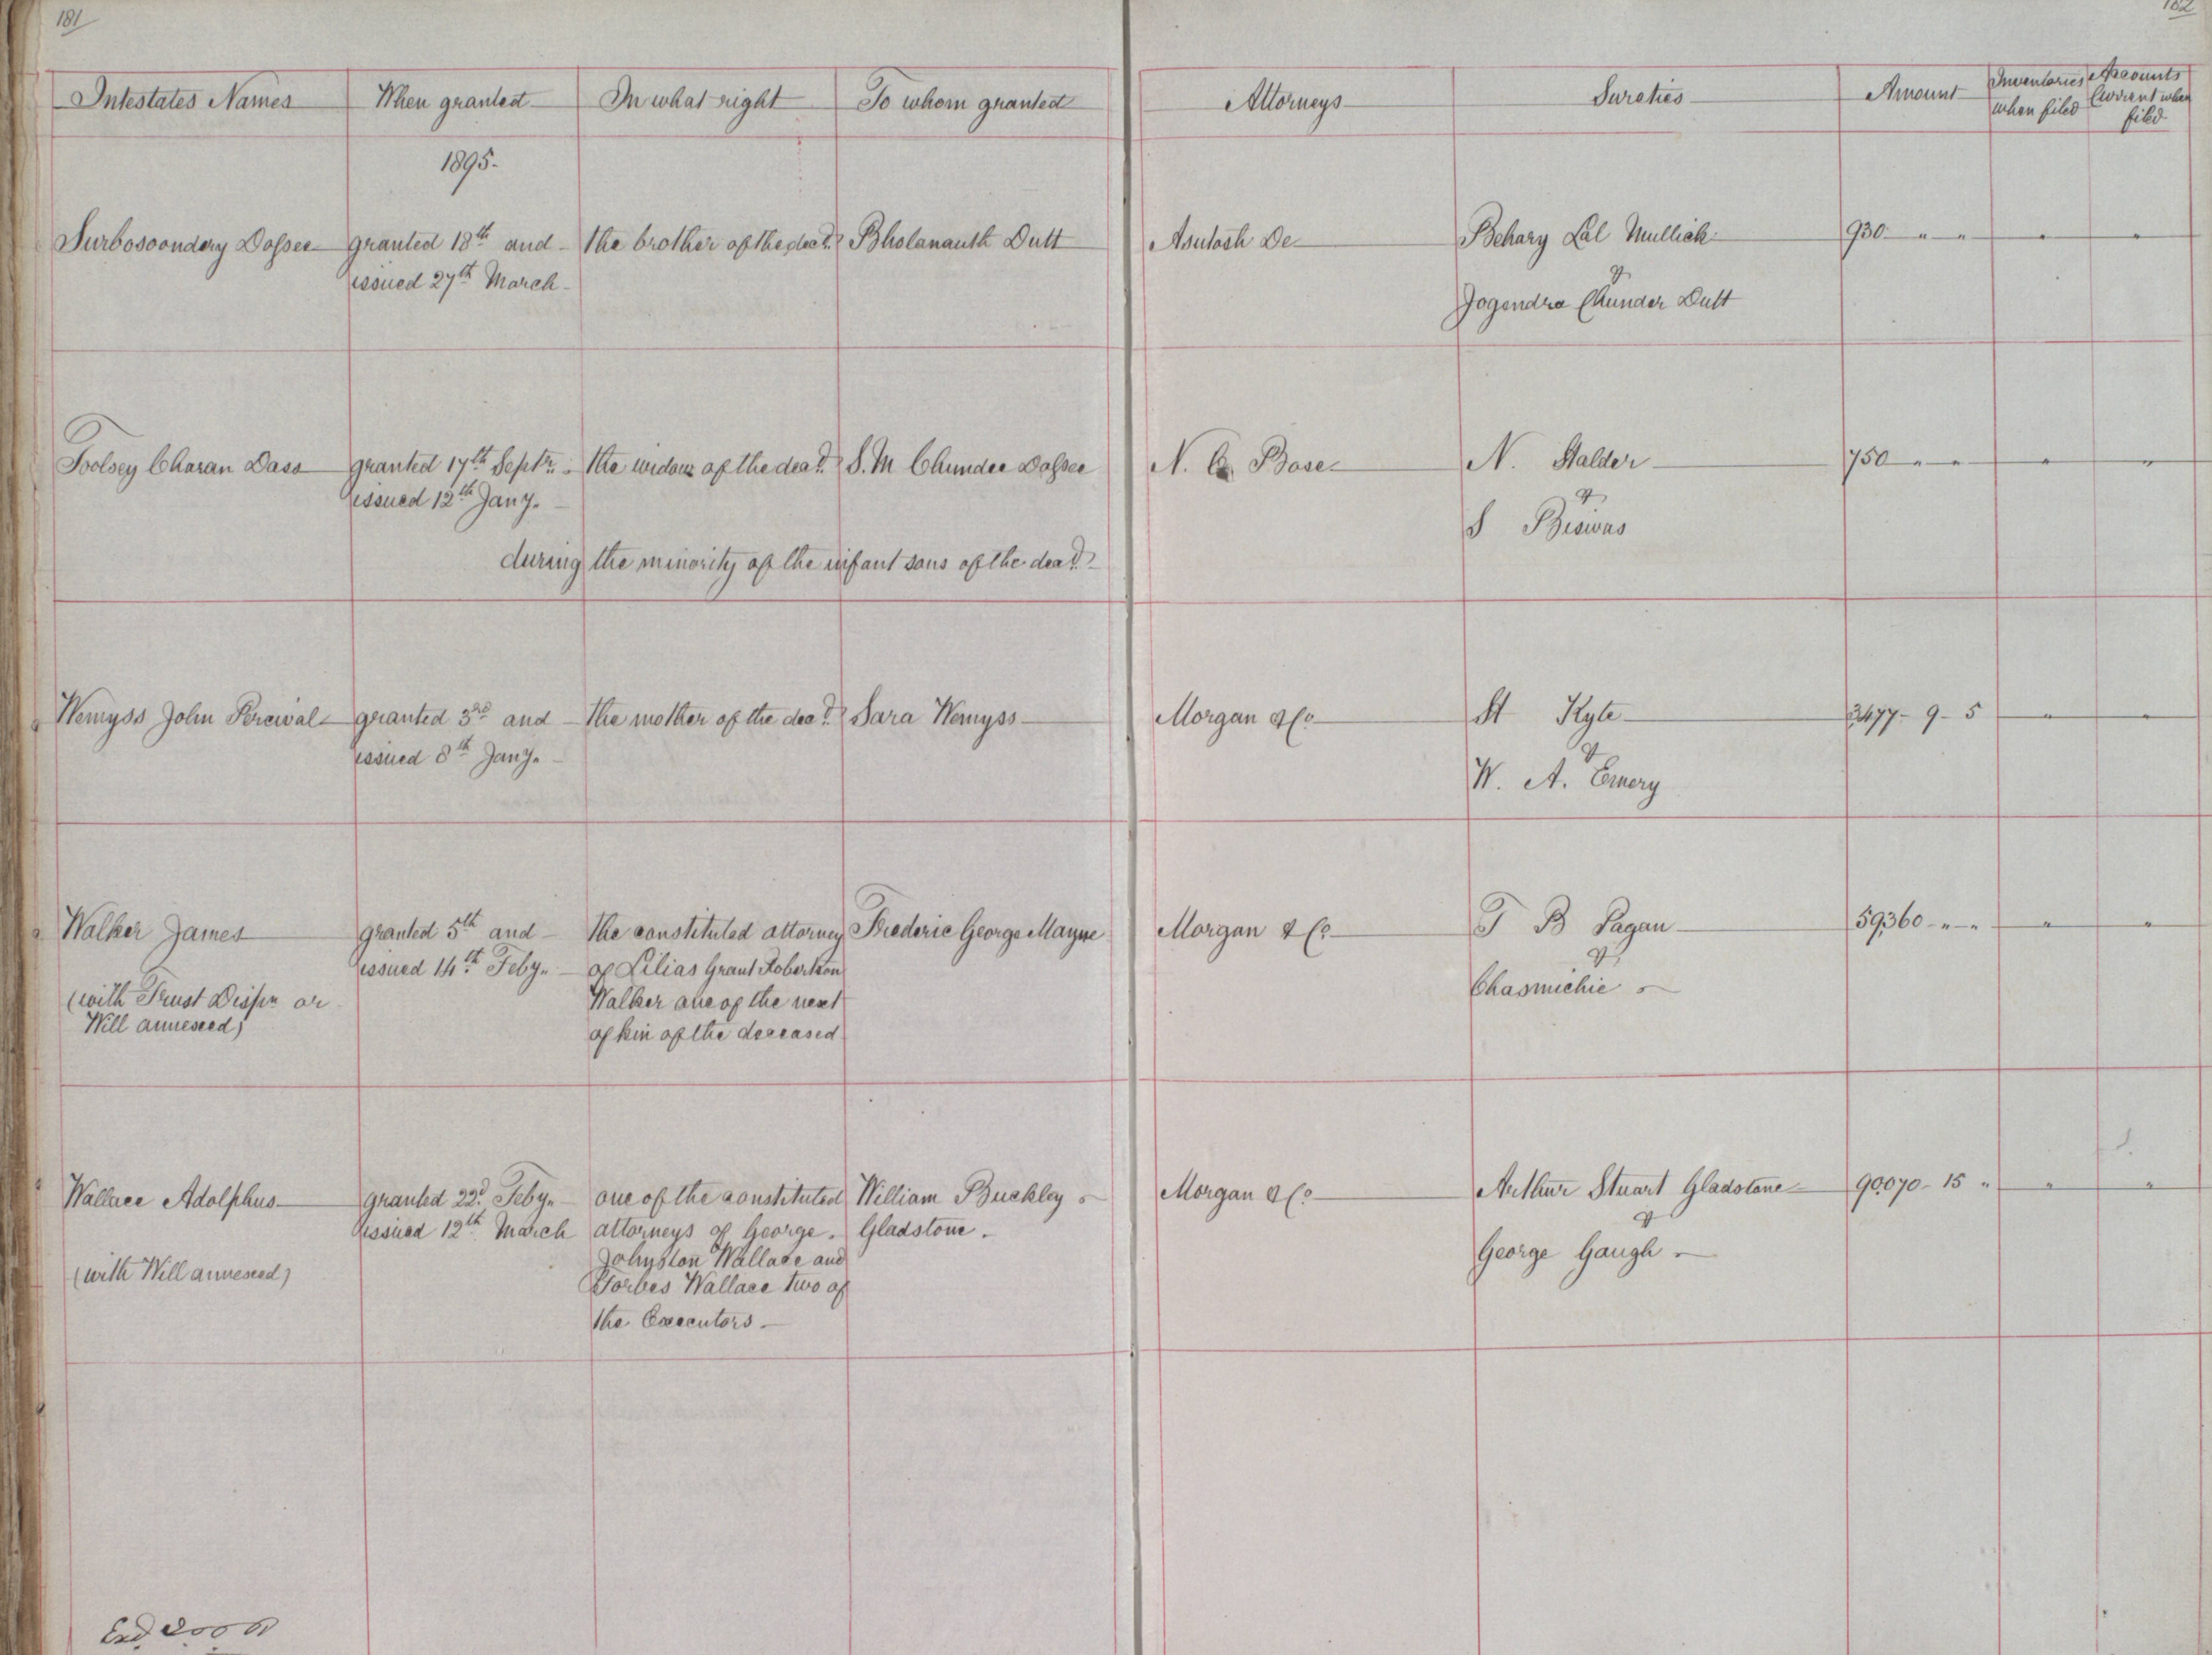 181
182
Intestates Names When granted In what right To whom granted Attorneys Sureties Amount Inventories when filed Accounts Current when filed
1895.
Surbosoondery Dossee granted 18th and the brother of the decd. Bholanauth Dutt Asutosh De Behary Lal Mullick 930 " " " "
issued 27th March &
Jogendra Chunder Dutt
Toolsey Charan Dass granted 17th Septr. the widow of the decd. S. M Chunder Dossee N. C. Bose N. Halder 750 " " " "
issued 12th Jany. &
S Biswas
during the minority of the infant sons of the decd.
Wemyss John Percival granted 3rd and the mother of the decd. Sara Wemyss Morgan & Co. St Kyle 3477 - 9 - 5 " "
issued 8th Jany. &
W. A. Emery
Walker James granted 5th and the constituted attorney Frederic George Mayne Morgan & Co. T B Pagan 59,360 - " - " " "
issued 14th Feby. of Lilias Grant Robertson &
(with Trust Dispn or Walker one of the next Chasmichie
Will annexed) of kin of the deceased
Wallace Adolphus granted 22d. Feby. one of the constituted William Buckley Morgan & Co. Arthur Stuart Gladstone 90,070 - 15 " " "
issued 12th March attorneys of George Gladstone. &
Johnston Wallace and George Gaugh
(with Will annexed) Forbes Wallace two of
the Executors.
Exd